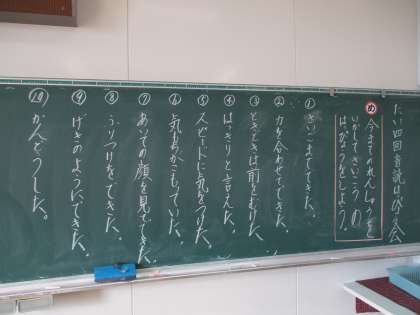 だい四回音読はぴょう会
め
今までのれんしゅうを
いかしてさいこうの
はぴょうをしよう。
① さいごまでできた。
② 力を合わせてできた。
③ ときどきは前をむけた。
④ はっきりと言えた。
⑤ スピードに気をつけた。
⑥ 気もちがこもっていた。
⑦ あいての顔を見てできた。
⑧ ふりつけをできた。
⑨ げきのようにできた。
⑩ かんどうした。